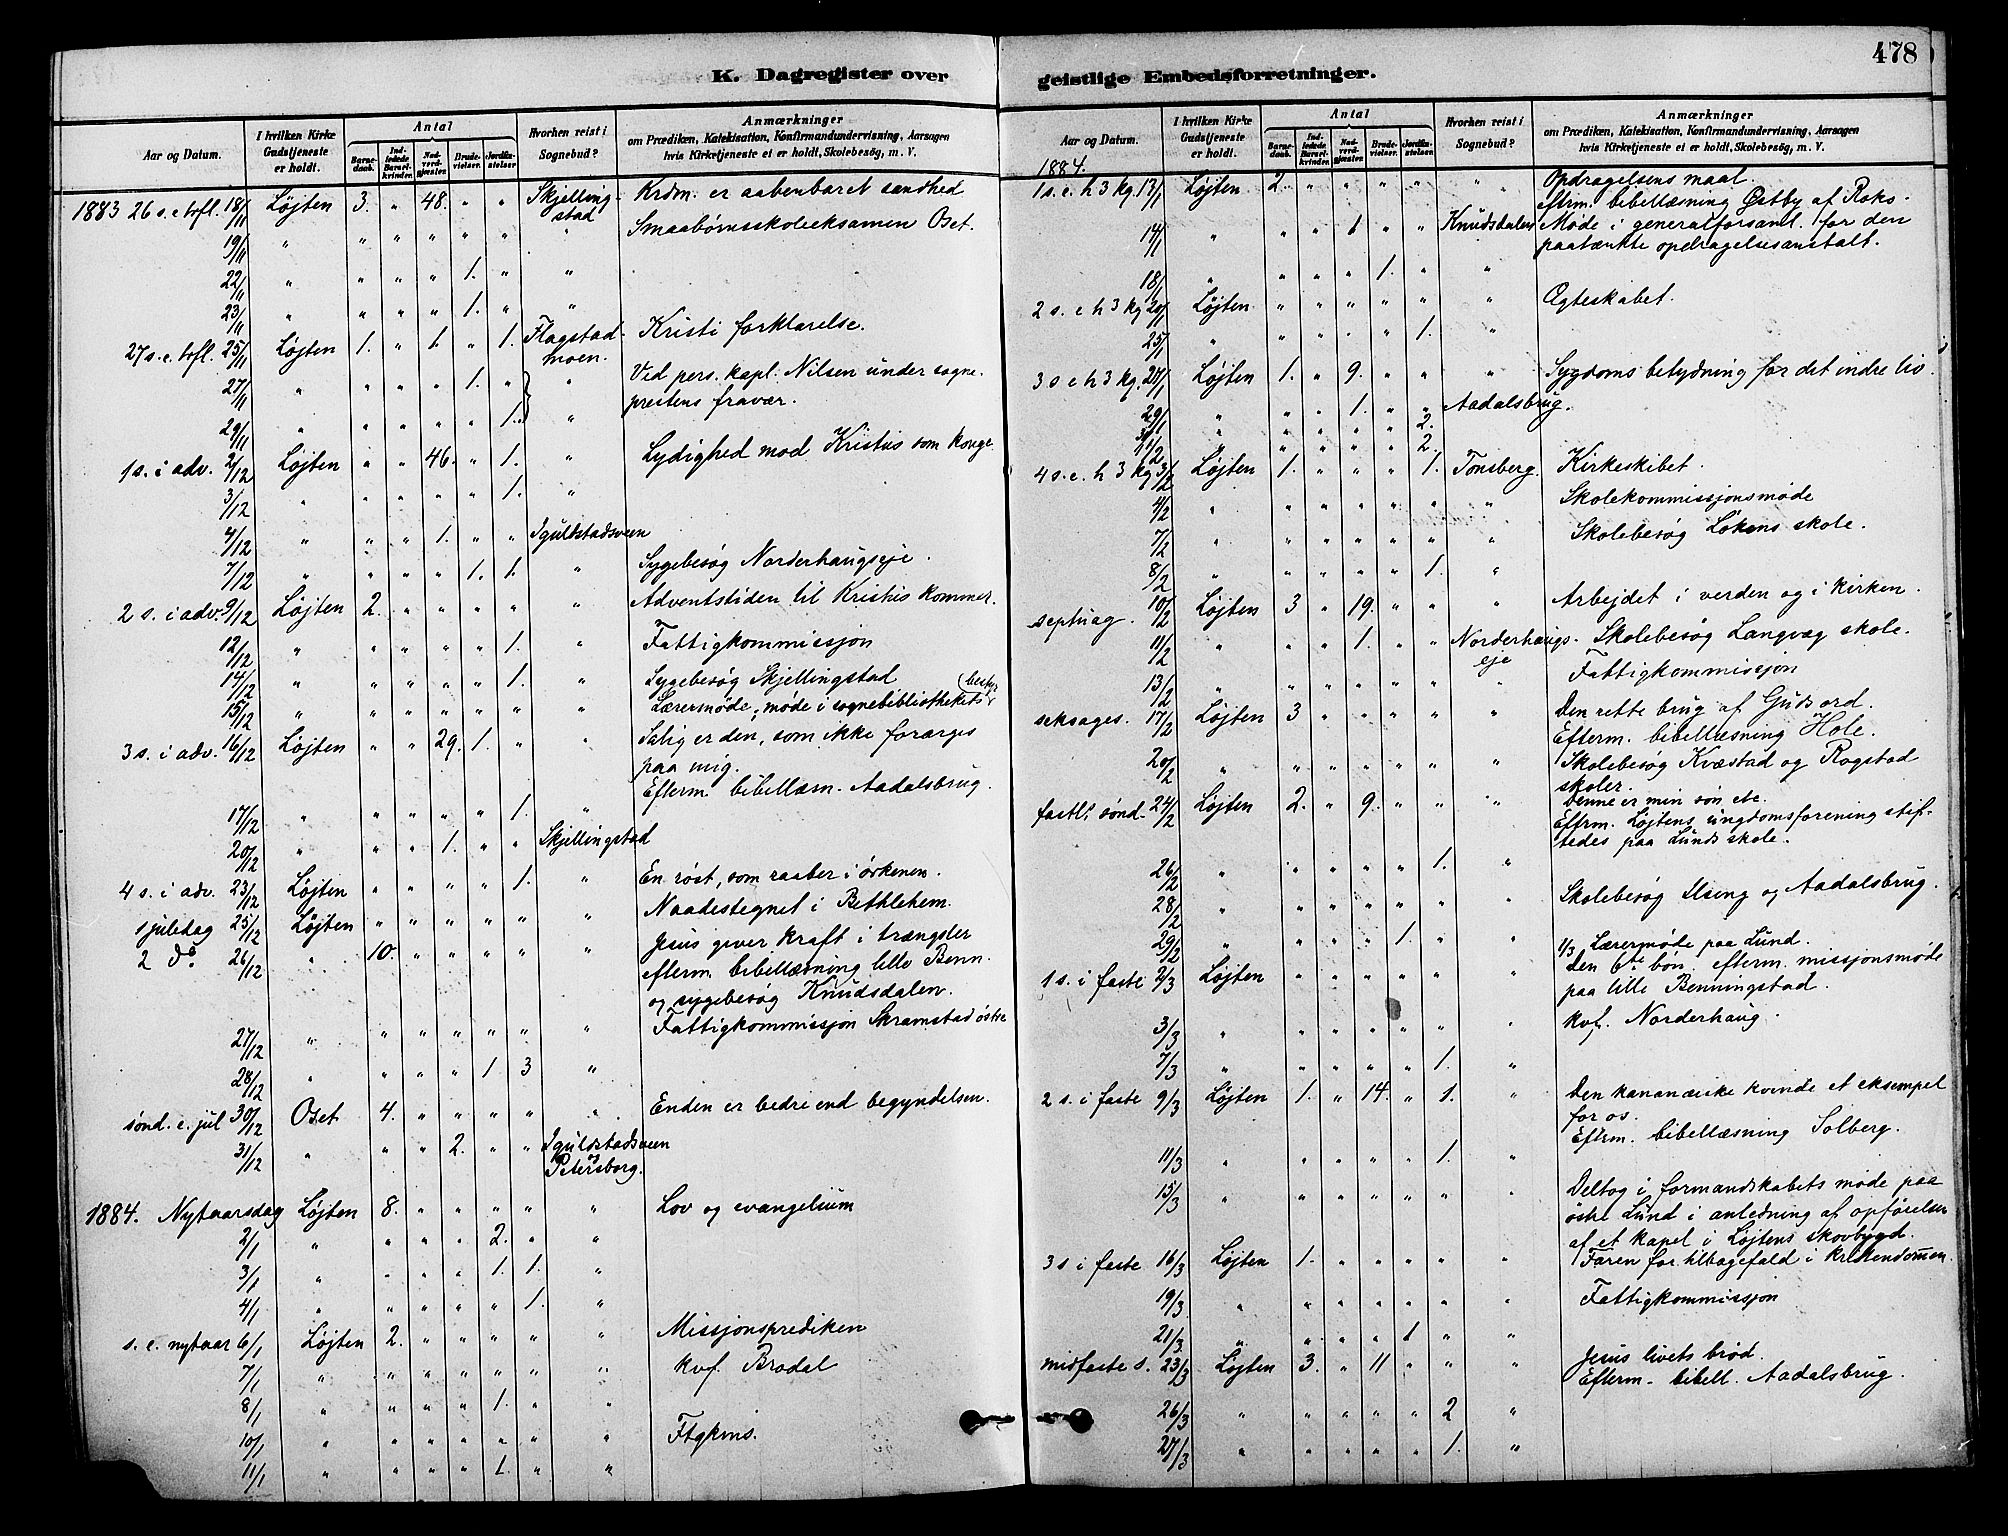 478
K. Dagregister over
geistlige Embedsforretninger.
Aar og Datum.
I hvilken Kirke Gudstjeneste er holdt.
Antal
Barnedaab.
Indledede Barselkvinder.
Nadverdgjester.
Brudevielser.
Jordfæstelser.
Hvorhen reist i Sognebud?
Anmærkninger
om Prædiken, Katekisation, Konfirmandundervisning, Aarsagen
hvis Kirketjeneste ei er holdt, Skolebesøg, m. V.
1883 26 s. e. trefl. 18/11 Løjten 3. " 48. " " Skjellingstad Krdm. er aabenbaret sandhed
19/11 " " " " " " " Smaabørnsskoleeksamen Oset.
22/11 " " " " 1. " "
23/11 " " " " 1. " "
27 s. e. trefl. 25/11 Løjten 1. " 1. " 1. Flagstadmoen. Kristi forklarelse.
27/11 " " " " 1. " " Ved pers. kapl. Nilsen under sogneprestens fravær.
29/11 " " " " " 1. "
1 s. i adv. 2/12 Løjten " " 46. " 1. " Lydighed mod Kristus som konge
3/12 " " " " " 1. "
4/12 " " " 1. " " Iguldstadsveen
7/12 " " " " 1. 1. " Sygebesøg Norderhaugseje.
2 s. i adv. 9/12 Løjten 2. " " " " " Adventstiden til Kristus kommer.
12/12 " " " " " 1. " Fattigkommissjon
14/12 " " " " " 1. " Sygebesøg Skjellingstad
15/12 " " " " " " " Lærermøde, møde i sognebibliothekets
3 s. i adv. 16/12 Løjten " " 29. 1. " " Salig er den, som ikke forarges
paa mig.
Efterm. bibellæsn. Aadalsbrug.
17/12 " " " " " 1. "
20/12 " " " 1. " " Skjellingstad
4 s. i adv. 23/12 Løjten " " " " 1. " En røst, som raaber i ørkenen.
1 juledag 25/12 Løjten " " " " " " Naadestegnet i Bethlehem.
2 do. 26/12 " 10. " " " " " Jesus giver kraft i trængsler
efterm. bibellæsning lille Benn.
og sygebesøg Knudsdalen.
27/12 " " " " " " " Fattigkommissjon Skramstad østre
28/12 " " " " 1 3 "
sønd. e. jul 30/12 Oset 4. " " " " " Enden er bedre end begyndelsen.
31/12 " " " 2. " " Iguldstadsveen og Petersborg.
1884. Nytaarsdag Løjten 8. " " " " " Lov og evangelium
2/1 " " " " 2. " "
3/1 " " " " 1. 1. "
4/1 " " " " " 1. "
s. e. nytaar 6/1 Løjten 2. " " " " " Missjonsprediken
7/1 " " " " " " " kvf. Brodal
8/1 " " " " 1. " "
10/1 " " " " " " " Ftgkms.
11/1 " " " " 1. " "
Aar og Datum.
I hvilken Kirke Gudstjeneste er holdt.
Antal
Barnedaab.
Indledede Barselkvinder.
Nadverdgjester.
Brudevielser.
Jordfæstelser.
Hvorhen reist i Sognebud?
Anmærkninger
om Prædiken, Katekisation, Konfirmandundervisning, Aarsagen
hvis Kirketjeneste et er holdt, Skolebesøg, m. V.
1884.
1 s. e. h 3 kg 13/1 Løjten 2. " " " " " Opdragelsens maal.
efterm. bibellæsning Østby af Roks-
14/1 " " " 1 " " Knudsdalen Møde i generalforsaml. for den
paatænkte opdragelsesanstalt.
18/1 " " " " 1. " "
2 s. e h 3 kg 20/1 Løjten " " " " " " Ægteskabet.
25/1 " " " " " 1. "
3 s e h 3 kg. 27/1 Løjten 1. " 9. " " " Sygdoms betydning for det indre liv.
29/1 " " " 1. " " Aadalsbrug.
1/2 " " " " " 2.
4 s. e. h 3 kg 3/2 Løjten 1. " " " 1. Tonsberg. Kirkeskibet.
4/2 " " " " " " " Skolekommissjonsmøde
7/2 " " " " " " " Skolebesøg Løkens skole.
8/2 " " " " " 1. "
septuag. 10/2 Løjten 3 " 19. " " " Arbejdet i verden og i kirken.
11/2 " " " 1. " " Norderhaugseje Skolebesøg Langvæg skole.
13/2 " " " " " " " Fattigkommissjon
seksages. 17/2 Løjten 3 " " " " " Den rette brug af Guds ord.
Efterm. bibellæsning Hole.
20/2 " " " " " " " Skolebesøg Kvæstad og Rogstad
skoler.
fastel. sønd. 24/2 Løjten 2. " 9. " " " Denne er min søn etc.
Eftrm. Løjtens ungdomsforening stif-
tedes paa Lunds skole.
26/2 " " " " " 1. "
28/2 " " " " " " " Skolebesøg Ilseng og Aadalsbrug.
29/2 " " " " 1. " " 1/3 Lærermøde paa Lund.
1 s. i faste 2/3 Løjten " " " " " " Den 6te bøn. efterm. missjonsmøde
paa lille Benningstad.
3/3 " " " " " " " kvf. Norderhaug.
7/3 " " " " " 1. "
2 s. i faste 9/3 Løjten 1. " 14. " 1. " Den kananæiske kvinde et eksempel
for os.
Eftrm. bibellæsning Solberg.
11/3 " " " " " 1. "
15/3 " " " " " " " Deltog i formandskabets møde paa
østre Lund i anledning af opførelsen
af et kapel i Løjtens skovbygd.
3 s i faste 16/3 Løjten 1. " " " " " Faren for tilbagefald i kristendommen
19/3 " " " " " " " Fattigkommissjon
21/3 " " " " 1 " "
midfaste s. 23/3 Løjten 3. " 11 " " " Jesus livets brød.
Efterm. bibell. Aadalsbrug.
26/3 " " " " " 2 "
27/3 " " " " " 1. "